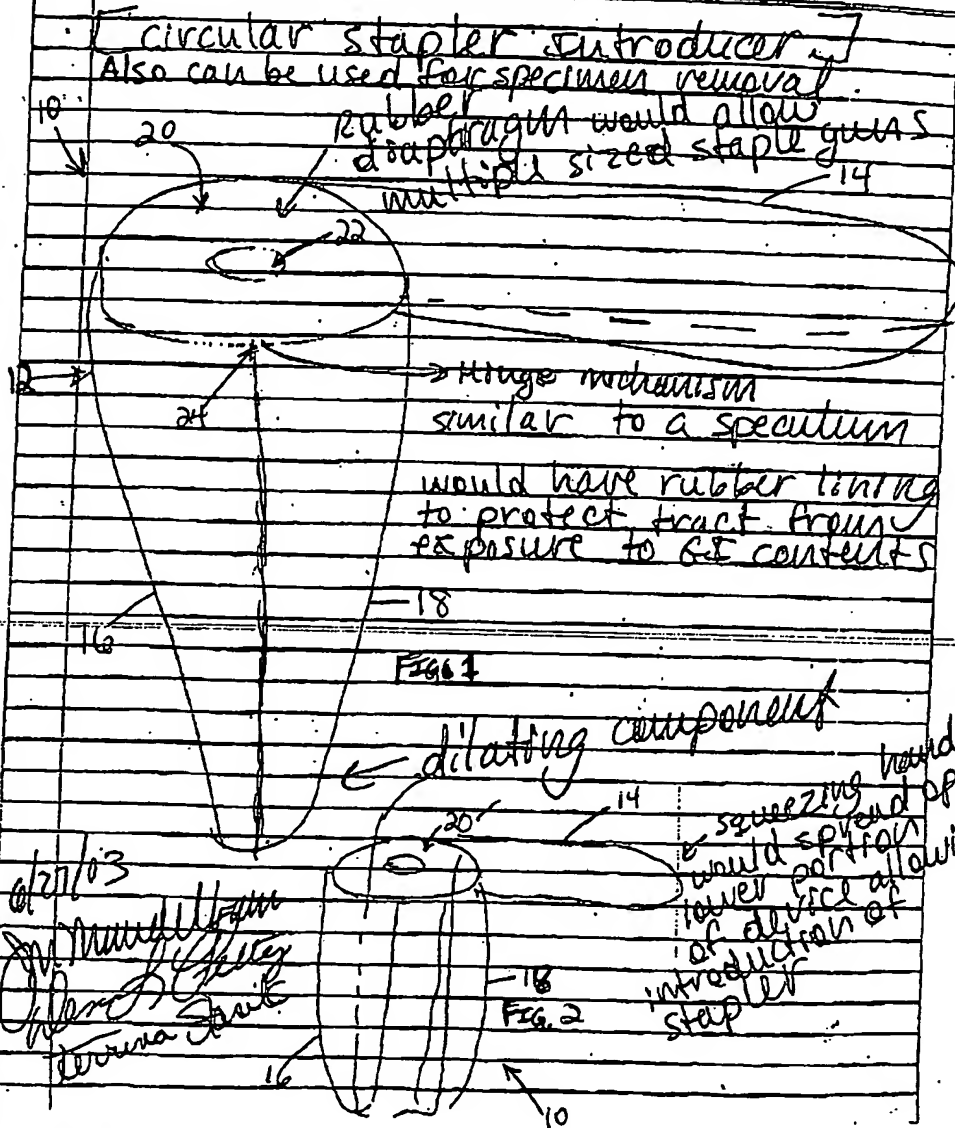 [circular stapler Introducer]
Also can be used for specimen removal
10
20
Rubber
diaphragm would allow
multiple sized staple guns
14
22
12
24
Hinge mechanism
similar to a speculum
would have rubber lining
to protect tract from
exposure to GI contents
16
18
FIG. 1
dilating component
20'
14
squeezing hand
would spread op
lower portion
of device allowi
introduction of
stapler
6/27/03
18
FIG. 2
16
10